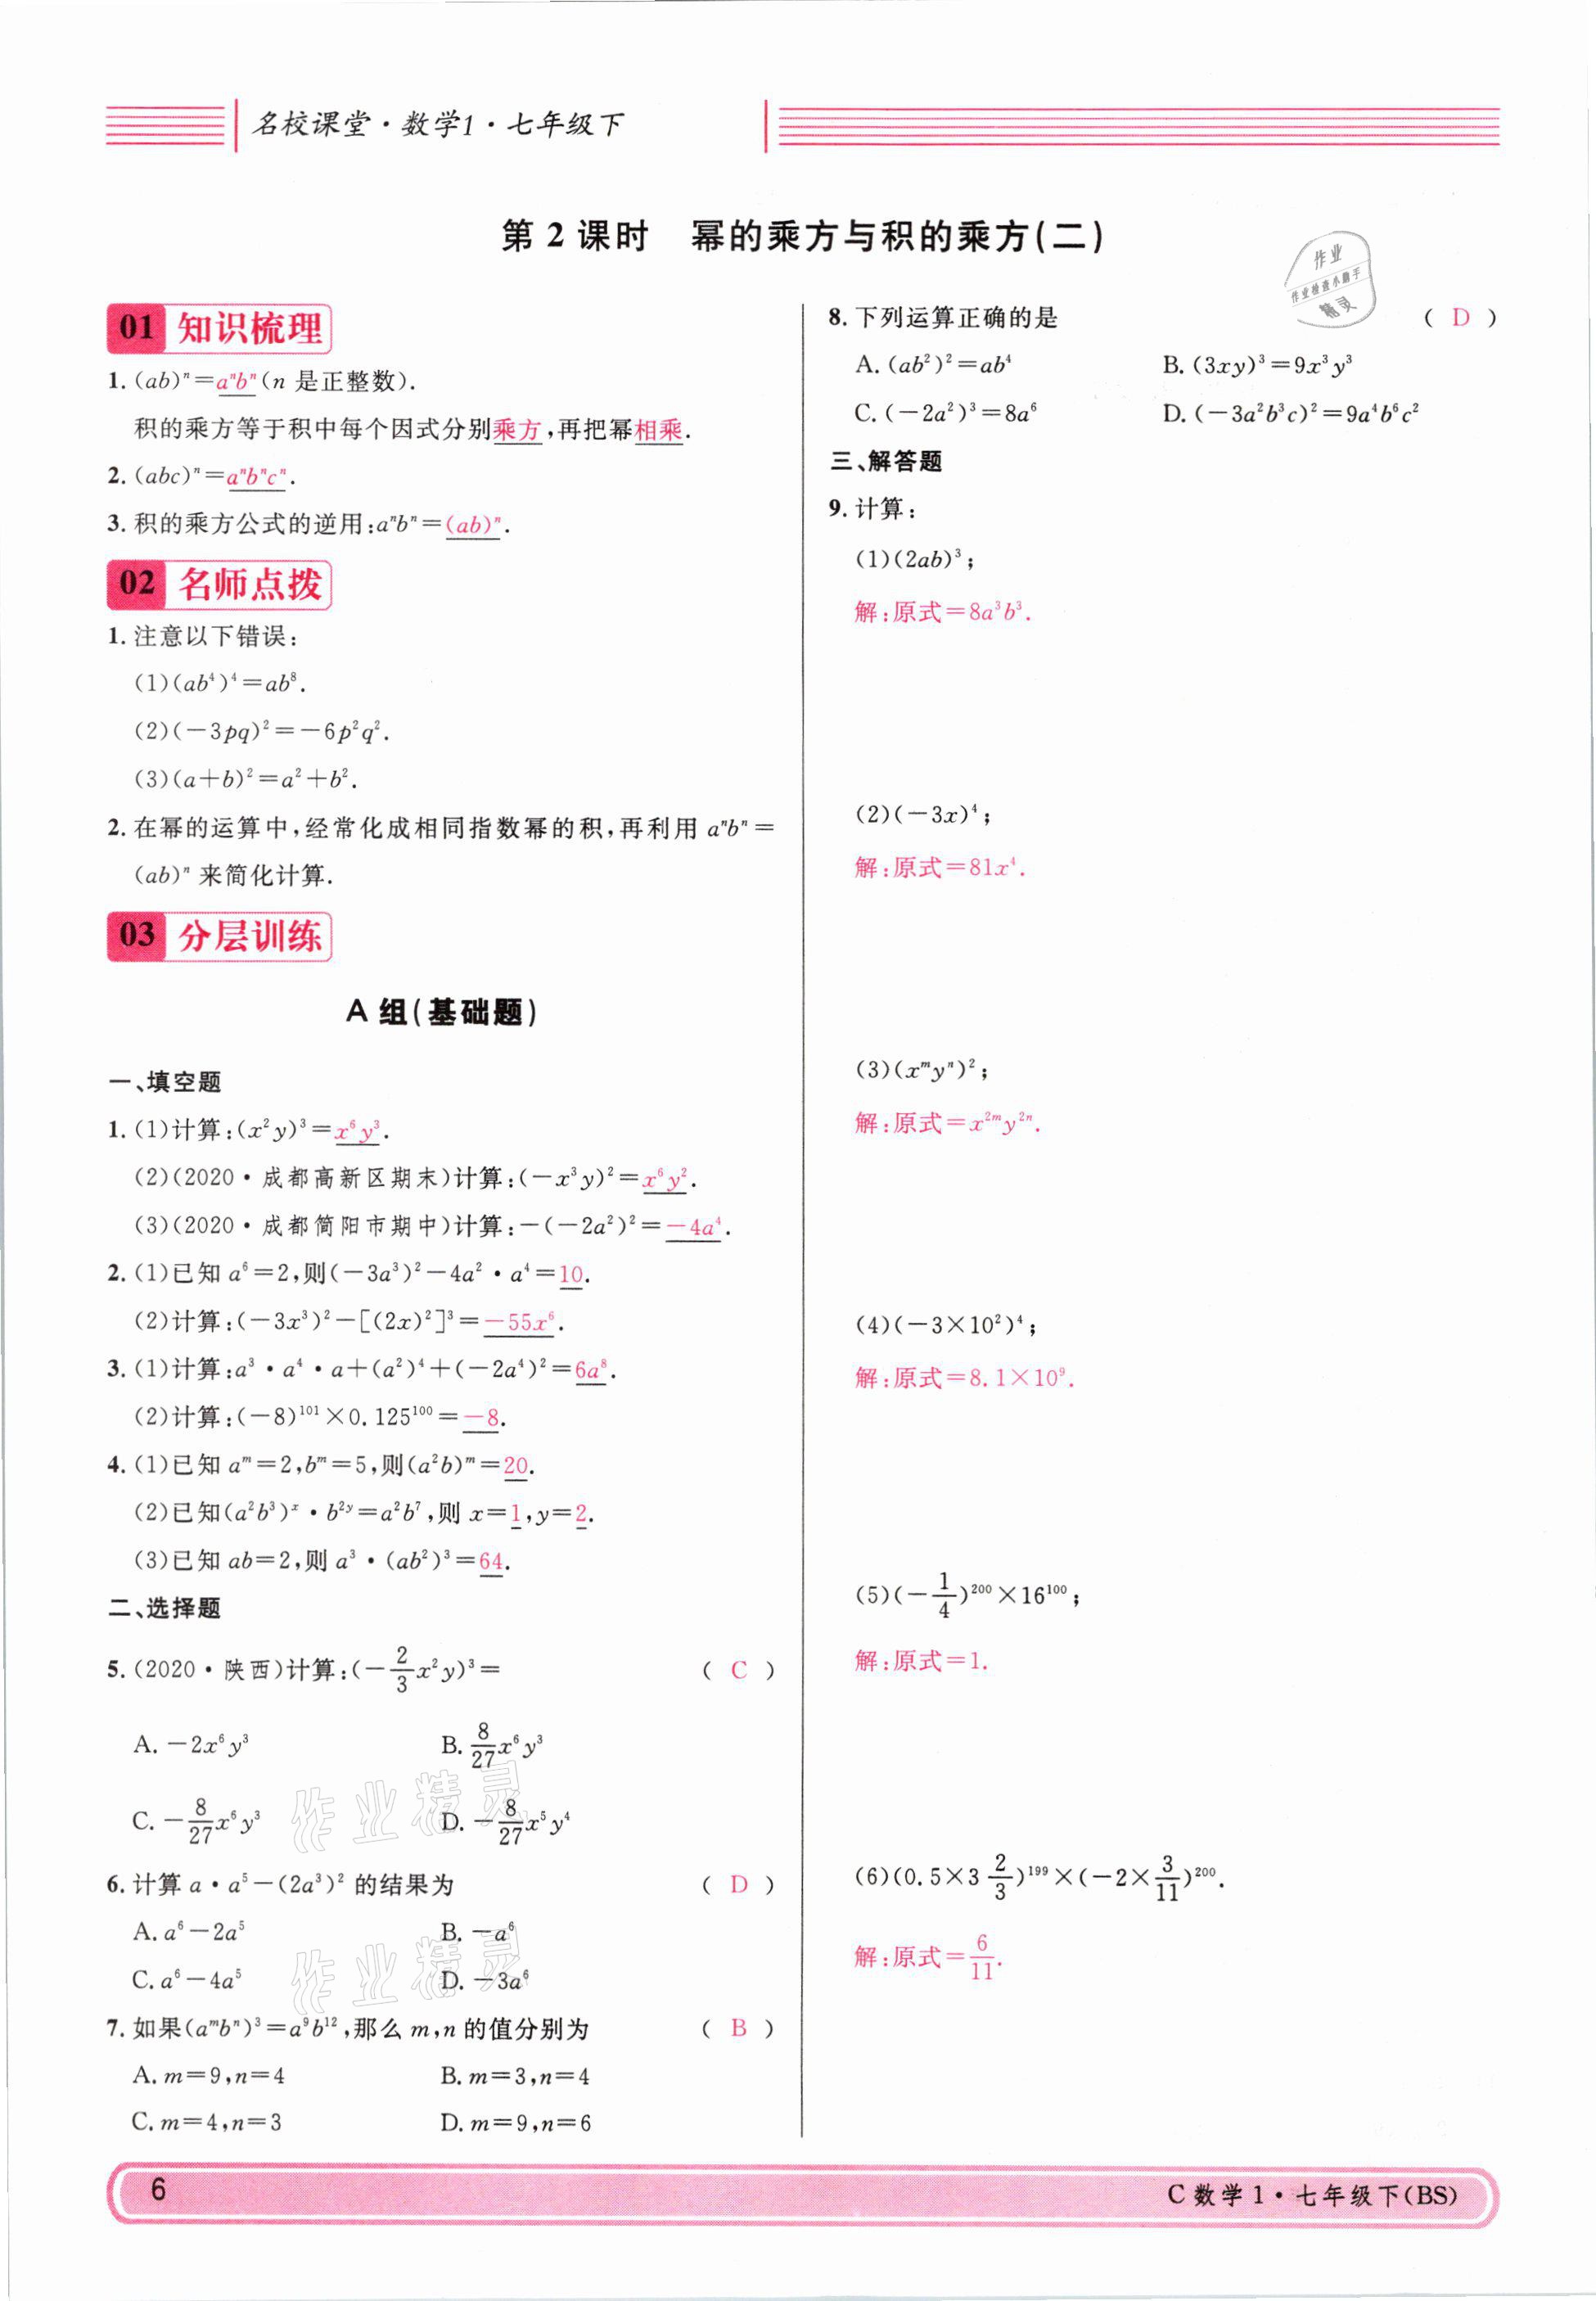 名校课堂·数学1·七年级下
第 2 课时　幂的乘方与积的乘方(二)
01 知识梳理
1. (ab)ⁿ=aⁿbⁿ(n 是正整数).
积的乘方等于积中每个因式分别乘方,再把幂相乘.
2. (abc)ⁿ=aⁿbⁿcⁿ.
3. 积的乘方公式的逆用:aⁿbⁿ=(ab)ⁿ.
02 名师点拨
1. 注意以下错误:
(1)(ab⁴)⁴=ab⁸.
(2)(-3pq)²=-6p²q².
(3)(a+b)²=a²+b².
2. 在幂的运算中,经常化成相同指数幂的积,再利用 aⁿbⁿ=
(ab)ⁿ 来简化计算.
03 分层训练
A 组(基础题)
一、填空题
1. (1)计算:(x²y)³=x⁶y³.
(2)(2020·成都高新区期末)计算:(-x³y)²=x⁶y².
(3)(2020·成都简阳市期中)计算:-(-2a²)²=-4a⁴.
2. (1)已知 a⁶=2,则(-3a³)²-4a²·a⁴=10.
(2)计算:(-3x³)²-[(2x)²]³=-55x⁶.
3. (1)计算:a³·a⁴·a+(a²)⁴+(-2a⁴)²=6a⁸.
(2)计算:(-8)¹⁰¹×0.125¹⁰⁰=-8.
4. (1)已知 aᵐ=2,bᵐ=5,则(a²b)ᵐ=20.
(2)已知(a²b³)ˣ·b²ʸ=a²b⁷,则 x=1,y=2.
(3)已知 ab=2,则 a³·(ab²)³=64.
二、选择题
5. (2020·陕西)计算:(-2/3x²y)³= ( C )
A. -2x⁶y³ B. 8/27x⁶y³
C. -8/27x⁶y³ D. -8/27x⁵y⁴
6. 计算 a·a⁵-(2a³)² 的结果为 ( D )
A. a⁶-2a⁵ B. -a⁶
C. a⁶-4a⁵ D. -3a⁶
7. 如果(aᵐbⁿ)³=a⁹b¹²,那么 m,n 的值分别为 ( B )
A. m=9,n=4 B. m=3,n=4
C. m=4,n=3 D. m=9,n=6
作业精灵
作业精灵
作业
作业检查小助手
精灵
8. 下列运算正确的是 ( D )
A. (ab²)²=ab⁴ B. (3xy)³=9x³y³
C. (-2a²)³=8a⁶ D. (-3a²b³c)²=9a⁴b⁶c²
三、解答题
9. 计算:
(1)(2ab)³;
解:原式=8a³b³.
(2)(-3x)⁴;
解:原式=81x⁴.
(3)(xᵐyⁿ)²;
解:原式=x²ᵐy²ⁿ.
(4)(-3×10²)⁴;
解:原式=8.1×10⁹.
(5)(-1/4)²⁰⁰×16¹⁰⁰;
解:原式=1.
(6)(0.5×3 2/3)¹⁹⁹×(-2×3/11)²⁰⁰.
解:原式=6/11.
6
C 数学 1·七年级下(BS)